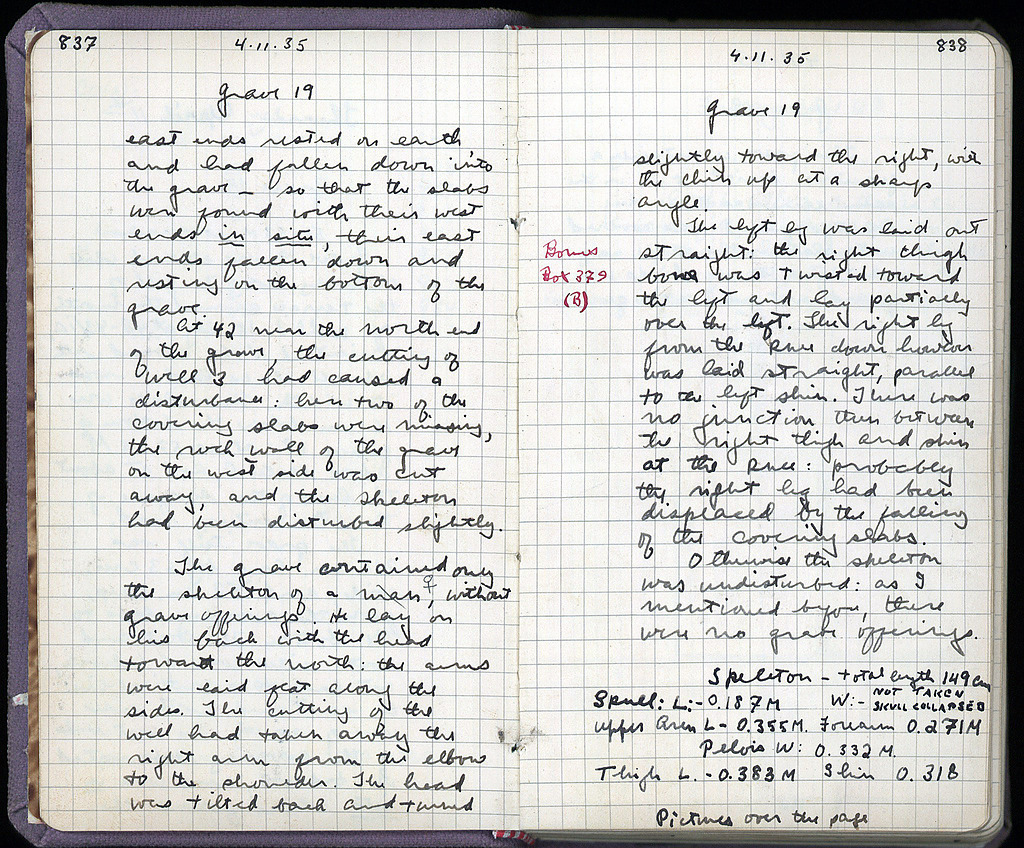 837
4.11.35
Grave 19
east ends rested on earth,
and had fallen down into
the grave – so that the slabs
were found with their west
ends in situ, their east
ends fallen down and
resting on the bottom of the
grave.
At 42 near the north end
of the grave, the cutting of
Well 3 had caused a
disturbance: here two of the
covering slabs were missing,
the rock wall of the grave
on the west side was cut
away, and the skeleton
had been disturbed slightly.
The grave contained only
the skeleton of a man, ♀ without
grave offerings. He lay on
his back with the head
toward the north: the arms
were laid flat along the
sides. The cutting of the
well had taken away the
right arm from the elbow
to the shoulder. The head
was tilted back and turned
838
4.11.35
Grave 19
slightly toward the right, with
the chin up at a sharp
angle.
The left leg was laid out
straight: the right thigh
bone was twisted toward
the left and lay partially
over the left. The right leg
from the knee down however
was laid straight, parallel
to the left shin. There was
no junction then between
the right thigh and shin
at the knee: probably
the right leg had been
displaced by the falling
of the covering slabs.
Otherwise the skeleton
was undisturbed: as I
mentioned before, there
were no grave offerings.
Bones
Box 379
(B)
Skeleton – total length 149 cm
Skull: L:- 0.187 M W:- NOT TAKEN
SKULL COLLAPSED
upper Arm L - 0.355 M. Forearm 0.271 M
Pelvis W: 0.332 M.
Thigh L. - 0.383 M Shin 0.318
Pictures over the page